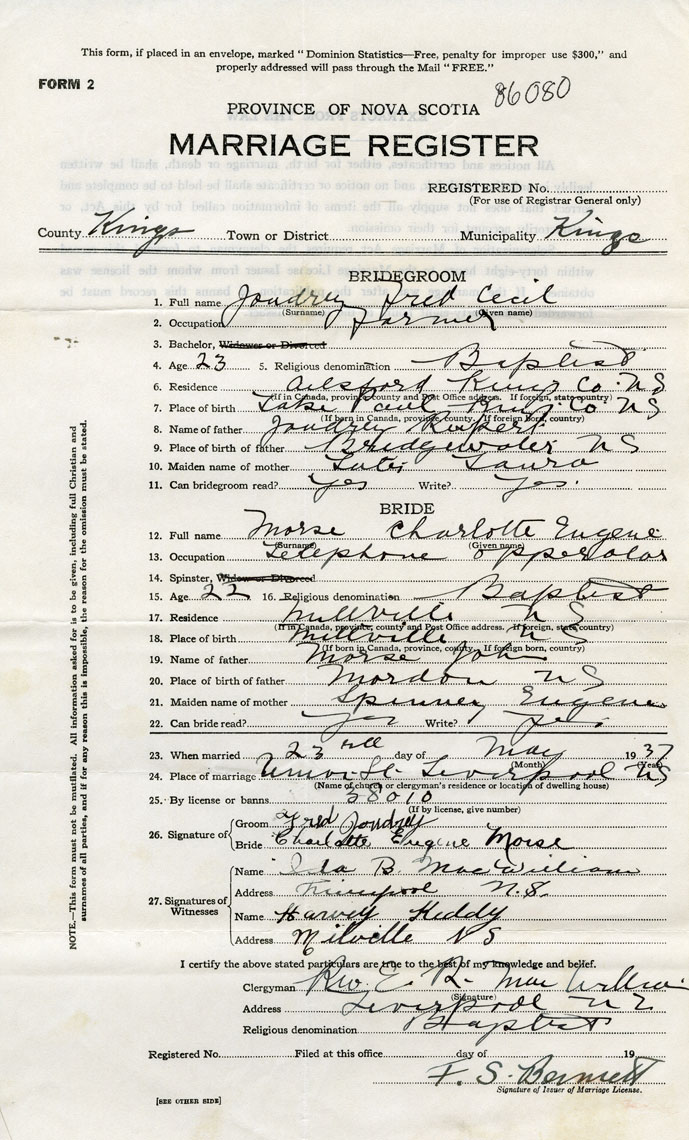 This form, if placed in an envelope, marked "Dominion Statistics—Free, penalty for improper use $300," and
properly addressed will pass through the Mail "FREE."
FORM 2
86080
PROVINCE OF NOVA SCOTIA
MARRIAGE REGISTER
REGISTERED No.
(For use of Registrar General only)
County Kings Town or District Municipality Kings
BRIDEGROOM
1. Full name Joudrey Fred Cecil
(Surname) (Given name)
2. Occupation Farmer
3. Bachelor, Widower or Divorced
4. Age 23 5. Religious denomination Baptist
6. Residence Aylsford Kings Co. N.S
(If in Canada, province county and Post Office address. If foreign, state country)
7. Place of birth Lake Paul Kings Co N S
(If born in Canada, province, county. If foreign born, country)
8. Name of father Joudrey Rupert
9. Place of birth of father Bridgewater N S
10. Maiden name of mother Laura
11. Can bridegroom read? Yes Write? Yes.
BRIDE
12. Full name Morse Charlotte Eugene
(Surname) (Given name)
13. Occupation Telephone Opperator
14. Spinster, Widow or Divorced
15. Age 22 16. Religious denomination Baptist
17. Residence Millville N S
(If in Canada, province, county and Post Office address. If foreign, state country)
18. Place of birth Millville N S
(If born in Canada, province, county. If foreign born, country)
19. Name of father Morse John
20. Place of birth of father Mordon N S
21. Maiden name of mother Spinney Eugene
22. Can bride read? Yes Write? Yes.
23. When married 23 day of May 1937
(Month) (Year)
24. Place of marriage Union St. Liverpool N S
(Name of church or clergyman's residence or location of dwelling house)
25. By license or banns 38010
(If by license, give number)
26. Signature of
Groom Fred Joudrey
Bride Charlotte Eugene Morse
27. Signatures of Witnesses
Name Ida B. MacWilliam
Address Liverpool N.S.
Name Harvey Keddy
Address Milville N S
I certify the above stated particulars are true to the best of my knowledge and belief.
Clergyman Rev. E. R. MacWilliam
(Signature)
Address Liverpool N S
Religious denomination Baptist
Registered No. Filed at this office day of 19
F. S. Bennett
Signature of Issuer of Marriage License.
[SEE OTHER SIDE]
NOTE.—This form must not be mutilated. All information asked for is to be given, including full Christian and
surnames of all parties, and if for any reason this is impossible, the reason for the omission must be stated.